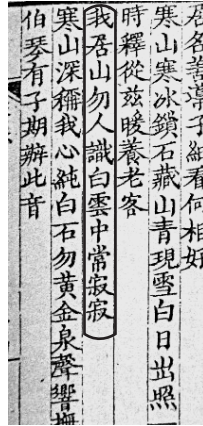 居名善導子細看何相好
寒山寒冰鎖石藏山青現雪白日出照一
時釋從兹暖養老客
我居山勿人識白雲中常寂寂
寒山深稱我心純白石勿黃金泉聲響撫
伯琴有子期辨此音